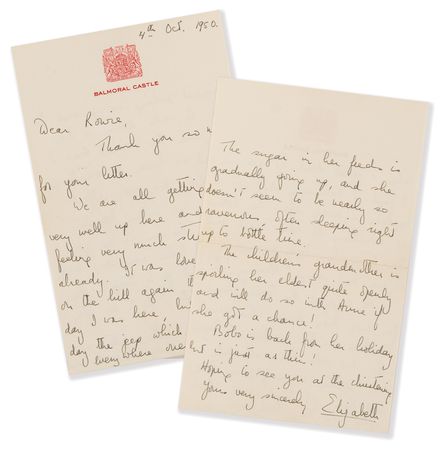 4th Oct. 1950.
BALMORAL CASTLE
Dear Rowie,
Thank you so
for your letter.
We are all getting
very well up here and
feeling very much
already. It was
on the hill again
day I was here, but
day the jeep which
everywhere
The sugar in her feeds is
gradually going up, and she
doesn't seem to be nearly so
ravenous, often sleeping right
up to bottle time.
The children's grandmother is
spoiling her eldest quite openly
and will do so with Anne if
she got a chance!
Bobo is back from her holiday
but is just as thin!
Hoping to see you at the christening
Yours very sincerely
Elizabeth